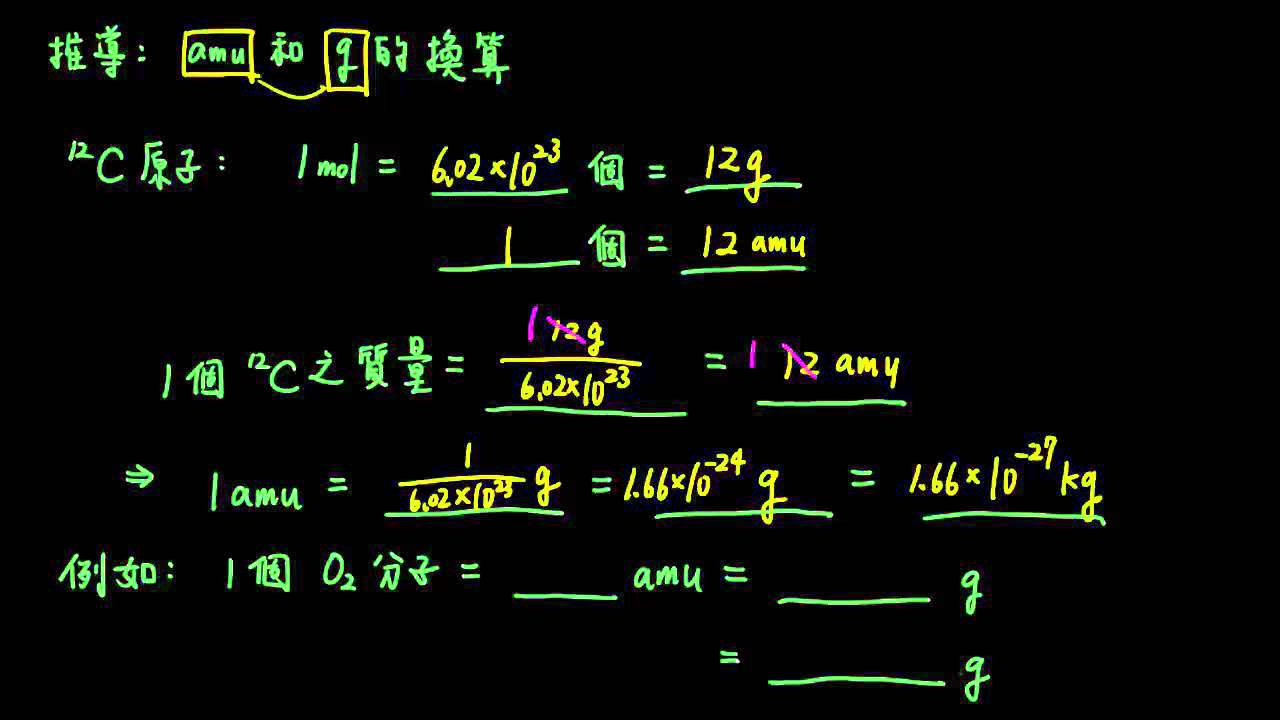 推導: amu 和 g 的換算
¹²C 原子: 1 mol = 6.02×10²³ 個 = 12g
1 個 = 12 amu
1個 ¹²C之質量 = 1 12g / 6.02×10²³ = 1 12 amu
⇒ 1 amu = 1 / 6.02×10²³ g = 1.66×10⁻²⁴ g = 1.66×10⁻²⁷ kg
例如: 1個 O₂ 分子 = ____ amu = ____ g
= ____ g